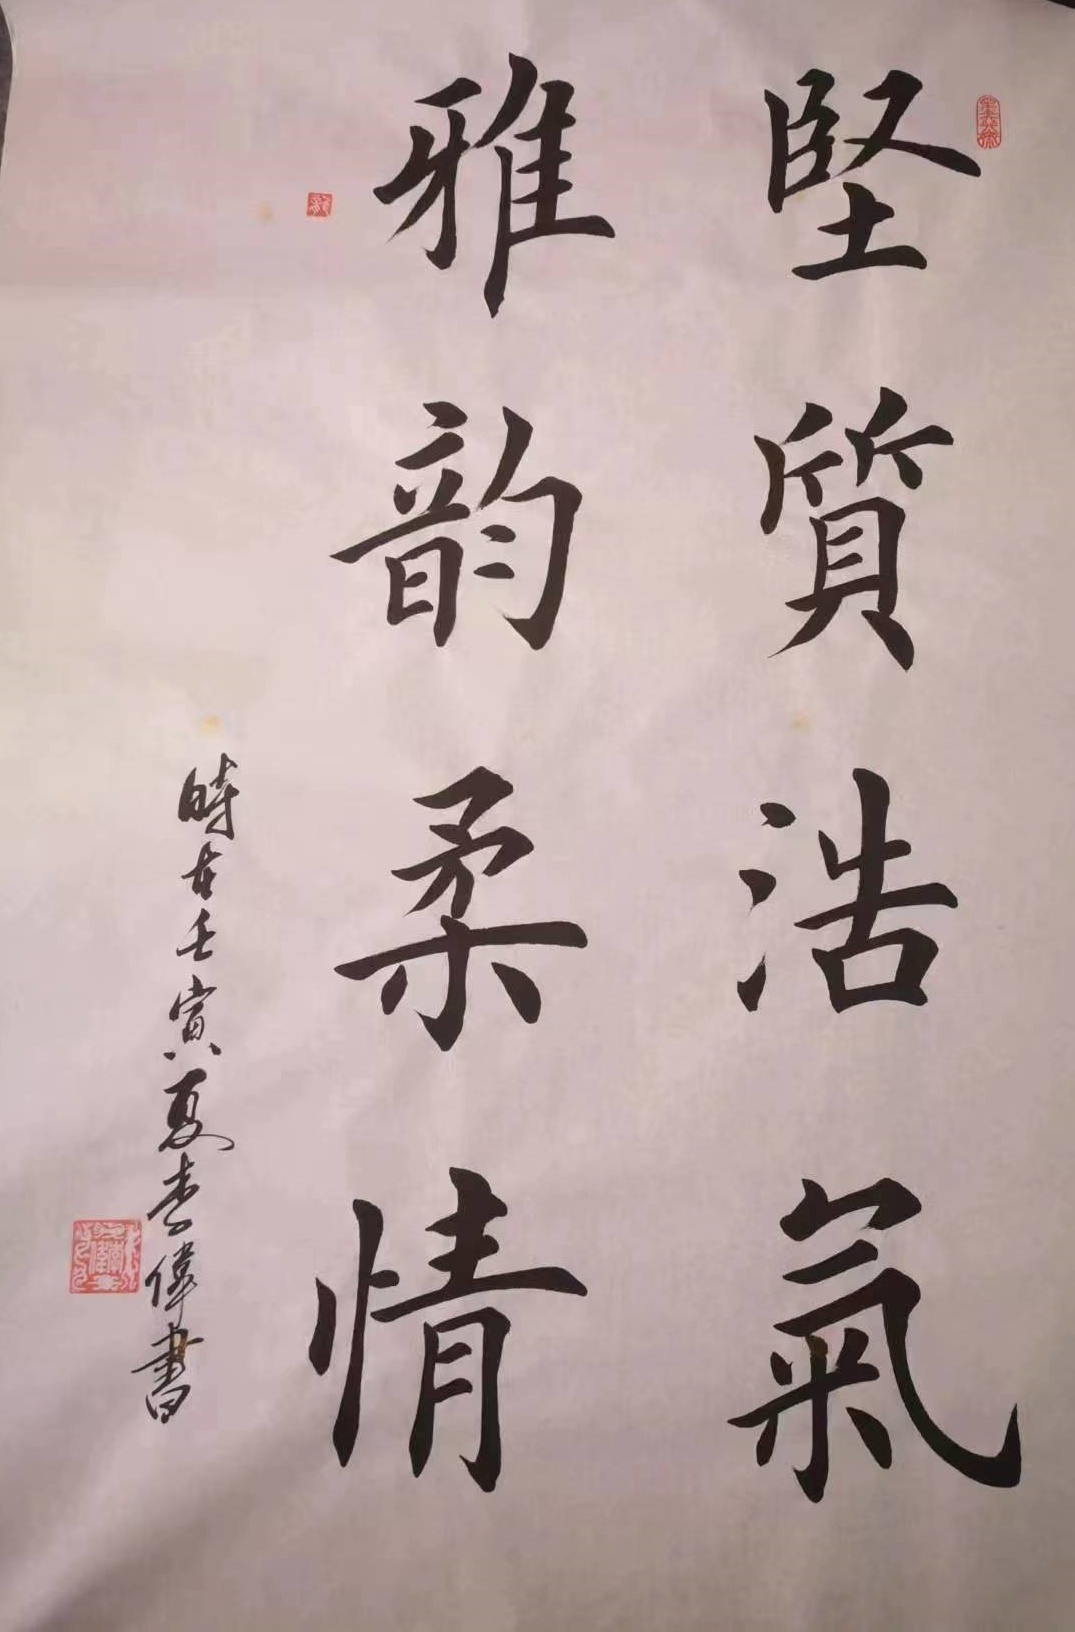 堅質浩氣
雅韵柔情
時在壬寅夏李偉書